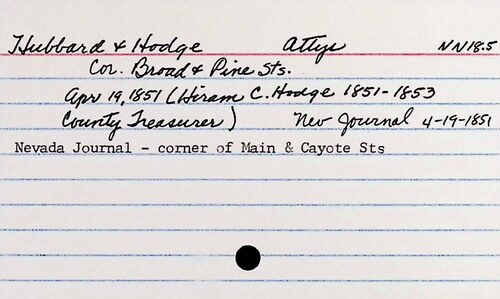 Hubbard & Hodge Attys NN18.5
Cor. Broad & Pine Sts.
Apr 19, 1851 (Hiram C. Hodge 1851-1853
County Treasurer) Nev Journal 4-19-1851
Nevada Journal - corner of Main & Cayote Sts